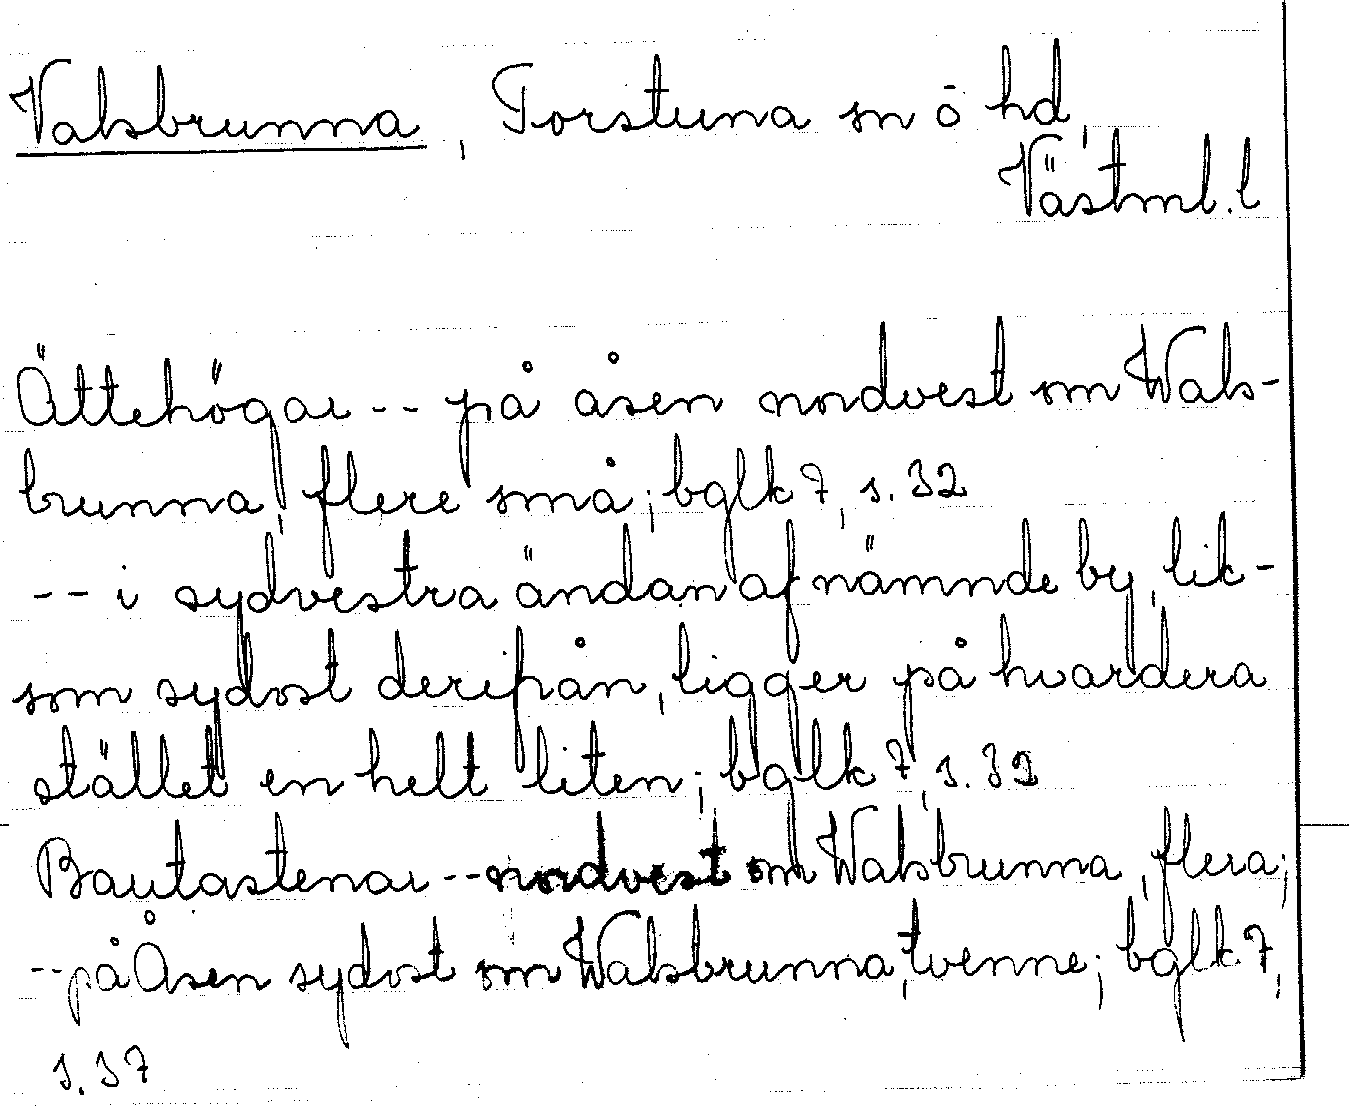 Valsbrunna, Torstuna sn ō hd,
Västml. l
Ättehögar -- på åsen nordvest om Wals-
brunna, flere små; bglk 7, s. 32
-- i sydvestra ändan af nämnde by, lik-
som sydost derifrån, ligger på hvardera
stället en helt liten; bglk 7, s. 32
Bautastenar -- nordvest om Walsbrunna, flera;
-- på Åsen sydost om Walsbrunna, tvenne; bglk 7,
s. 37